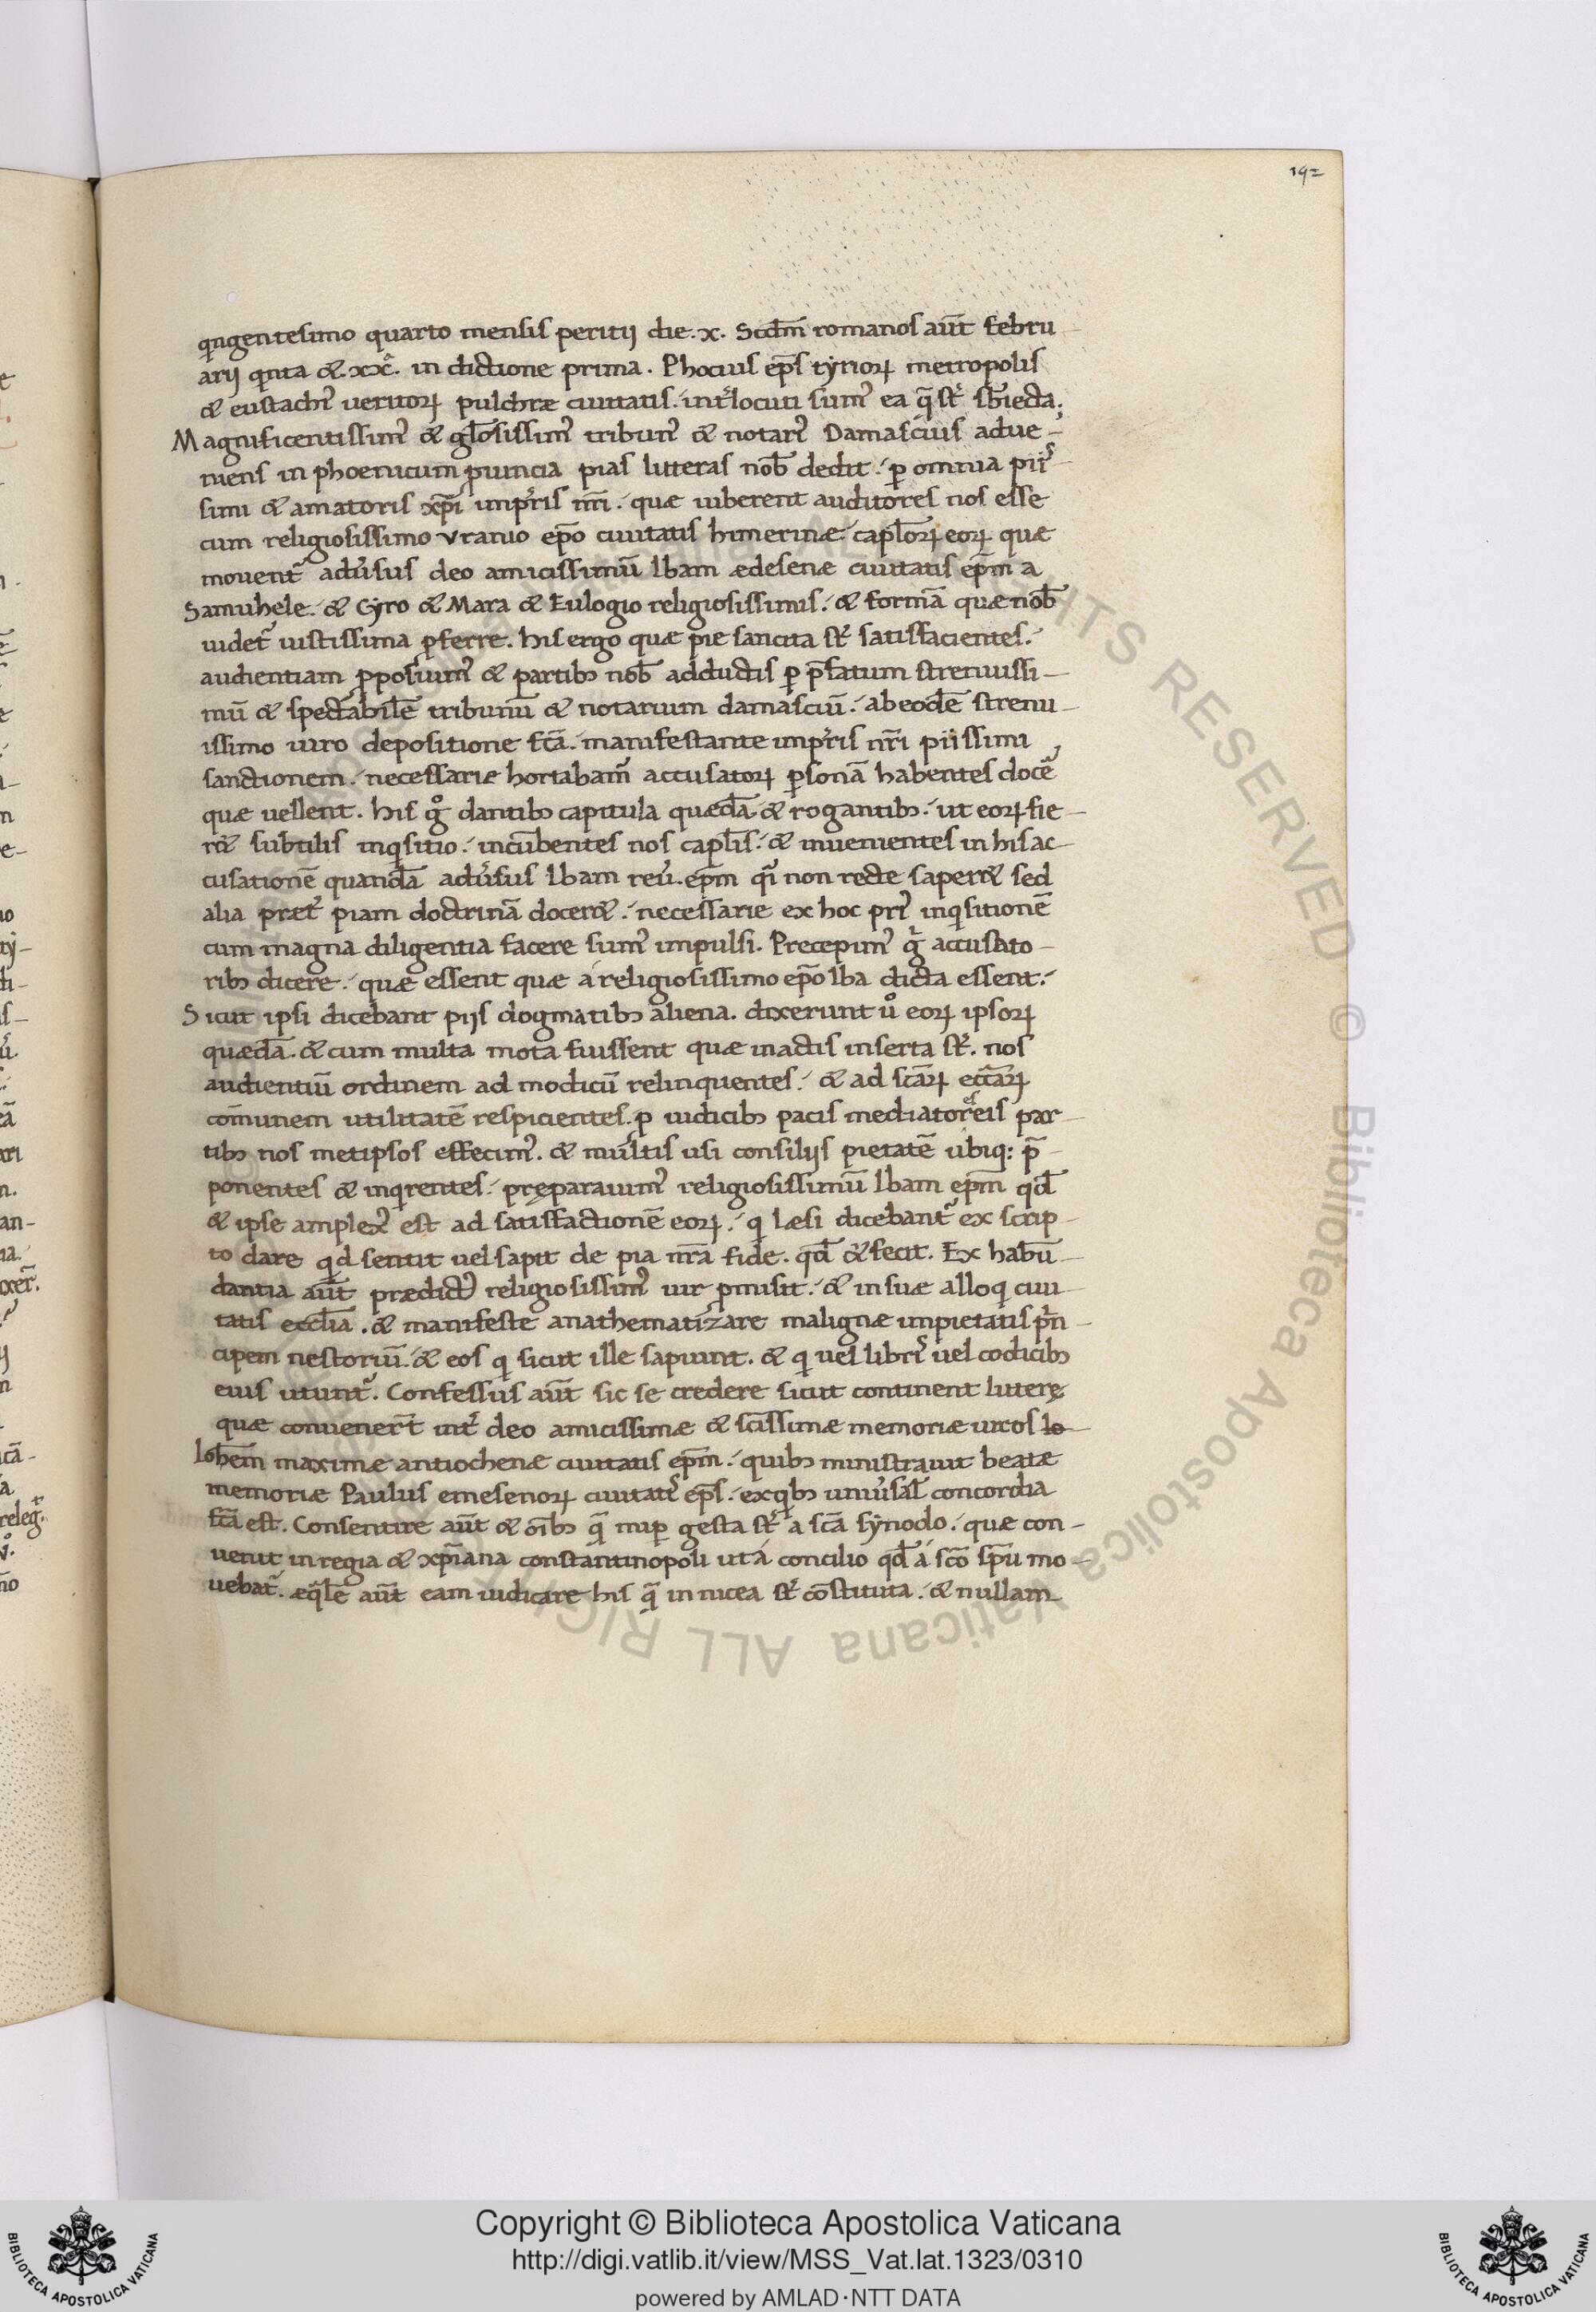 192
qngentesimo quarto mensis peritij die. x. Scdm̄ romanos aūt febru-
arij qnta &. xx&̄. in dictione prima. Phocius ep̄s tyrioꝝ metropolis
& eustachi᷒ veritoꝝ pulchræ ciuitatis. int̓locuti sum᷒ ea q̄ st̓ sb̄iecta.
Magnificentissim᷒ & gl̄osissim᷒ tribun᷒ & notari᷒ Damascius adue-
niens in phoenicum puincia pias litteras nob̄ dedit. ꝑ omnia pii᷒-
simi & amatoris xp̄i imp̓ris nr̄i. quæ iuberent auditores nos esse
cum religiosissimo vranio ep̄o ciuitatis himerinæ capl̄oꝝ eoꝝ quæ
mouent᷒ adu̓sus deo amicissimū Ibam ædesenæ ciuitatis ep̄m a
Samuhele. & Cyro & Mara & Eulogio religiosissimis. & formā quæ nob̄
uidet᷒ iustissima ꝓferre. his ergo quæ pie sancita st̓ satisfacientes.
audientiam ꝓposuim᷒ & partibꝫ nob̄ adductis ꝑ p̄fatum strenuissi-
mū & spectabilē tribunū & notarium damasciū. ab eodē strenu-
issimo uiro depositione fc̄a. manifestante imp̓ris nr̄i piissimi
sanctionem. necessarie hortabam᷒ accusatoꝝ ꝑsonā habentes docē
quæ uellent. his g̊ dantibꝫ capitula quædā & rogantibꝫ. ut eoꝝ fie-
r& subtilis inqsitio. incūbentes nos capl̄is. & inuenientes in his ac-
cusationē quandā adu̓sus Ibam reu̓. ep̄m qi non recte saper& sed
alia præt̓ piam doctrinā docer&. necessarie ex hoc pri᷒ inqsitionē
cum magna diligentia facere sum᷒ impulsi. Precepim᷒ g̊ accusato-
ribꝫ dicere. quæ essent quæ a religiosissimo ep̄o Iba dicta essent.
Sicut ipsi dicebant pijs dogmatibꝫ aliena. dixerunt ů eoꝝ ipsoꝝ
quædā. & cum multa mota fuissent quæ in actis inserta st̓. nos
audientiū ordinem ad modicū relinquentes. & ad scāꝝ eccl̄aꝝ
cōmunem utilitatē respicientes. ꝓ iudicibꝫ pacis mediatores eis par-
tibꝫ nos metipsos effecim᷒. & multis usi consilijs pietatē ubiq: p̄-
ponentes & inqrentes. pręparauim᷒ religiosissimū Ibam ep̄m qd̄
& ipse amplex᷒ est ad satisfactionē eoꝝ. q læsi dicebant᷒ ex scrip-
to dare qd sentit uel sapit de pia nr̄a fide. qd̄ & fecit. Ex habū-
dantia aūt prædict᷒ religiosissim᷒ uir ꝓmisit. & in suæ alloq ciui-
tatis eccl̄ia. & manifeste anathematizare malignæ impietatis p̓n-
cipem nestoriū. & eos q sicut ille sapiunt. & q uel libri᷒ uel codicibꝫ
eius utunt᷒. Confessus aūt sic se credere sicut continent litterę
quæ conuener̄t int̓ deo amicissimæ & sc̄issimæ memoriæ uiros Io-
Ioh̄em maximæ antiochenæ ciuitatis ep̄m. quibꝫ ministrauit beatæ
memoriæ Paulus emesenoꝝ ciuitati᷒ ep̄s. ex qbꝫ uniu̓sal̄ concordia
fc̄a est. Consentire aūt & oīb᷒ q̄ nuꝑ gesta st̓ a sc̄a synodo. quæ con-
uenit in regia & xp̄iana constantinopoli ut a concilio qd̄ a sc̄o sp̄u mo-
uebat᷒. æq̄lē aūt eam iudicare his q̄ in nicea st̓ cōstituta. & nullam
Copyright © Biblioteca Apostolica Vaticana
http://digi.vatlib.it/view/MSS_Vat.lat.1323/0310
powered by AMLAD·NTT DATA